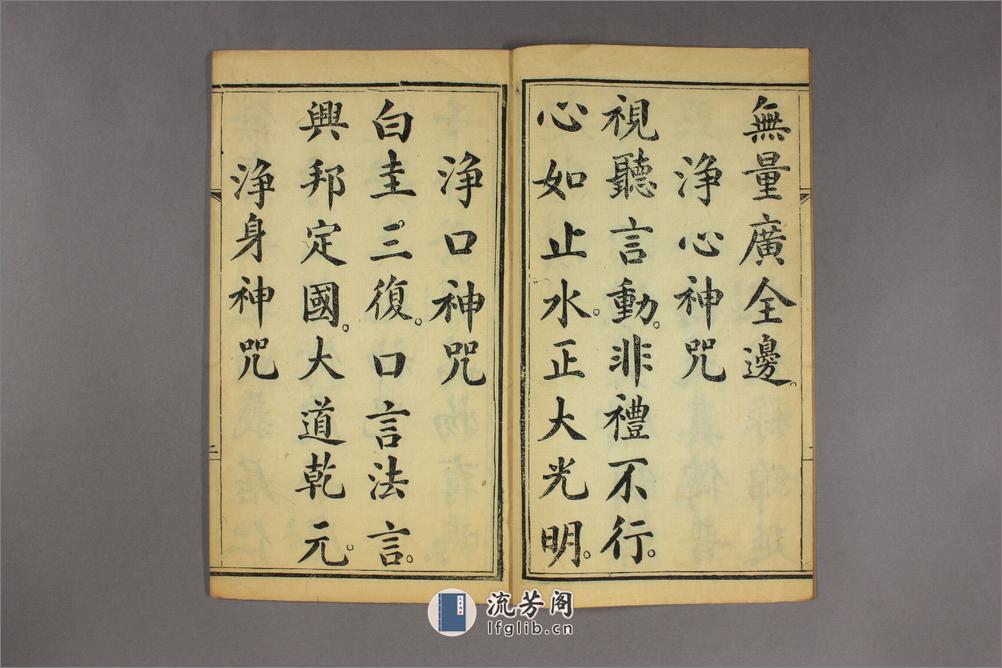 無量廣全邊。
淨心神咒
視聽言動。非禮不行。
心如止水。正大光明。
淨口神咒
白圭三復。口言法言。
興邦定國。大道乾元。
淨身神咒
二
流芳阁
lfglib.cn